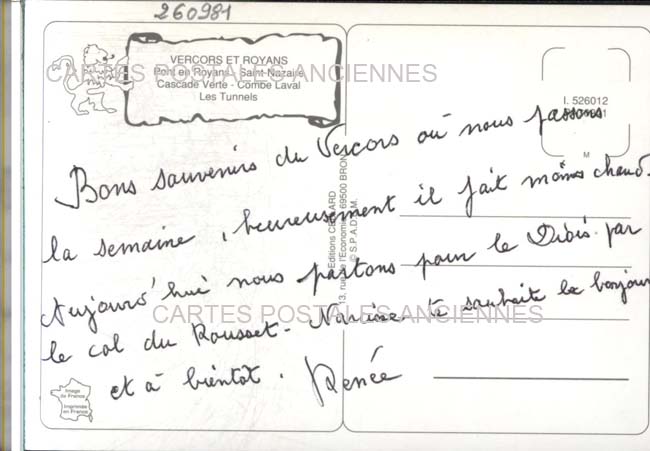 260981
VERCORS ET ROYANS
Pont en Royans - Saint-Nazaire
Cascade Verte - Combe Laval
Les Tunnels
CARTES POSTALES ANCIENNES
I. 526012
M
Bons souvenirs du Vercors où nous passons
la semaine, heureusement il fait moins chaud.
Aujourd'hui nous partons pour le Diois par
le col du Rousset - te souhaite le bonjour
et à bientôt. Renée
CARTES POSTALES ANCIENNES
Editions
13, rue de l'Economie 69500 BRON
© S.P.A.D.E.M.
Image
de France
Imprimée
en France